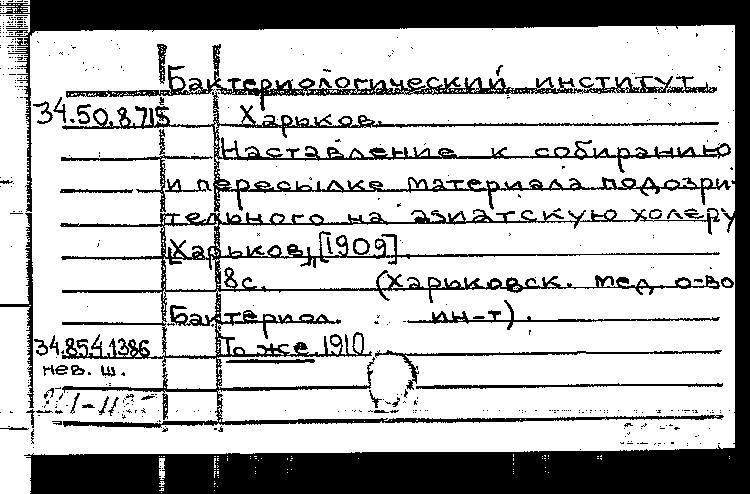 Бактериологический институт
34.50.8.715 Харьков.
Наставление к собиранию
и пересылке материала подозри-
тельного на азиатскую холеру
[Харьков], [1909].
8с. (Харьковск. мед. о-во
Бактериол. ин-т).
34.854.1386 То же. 1910
нев. ш.